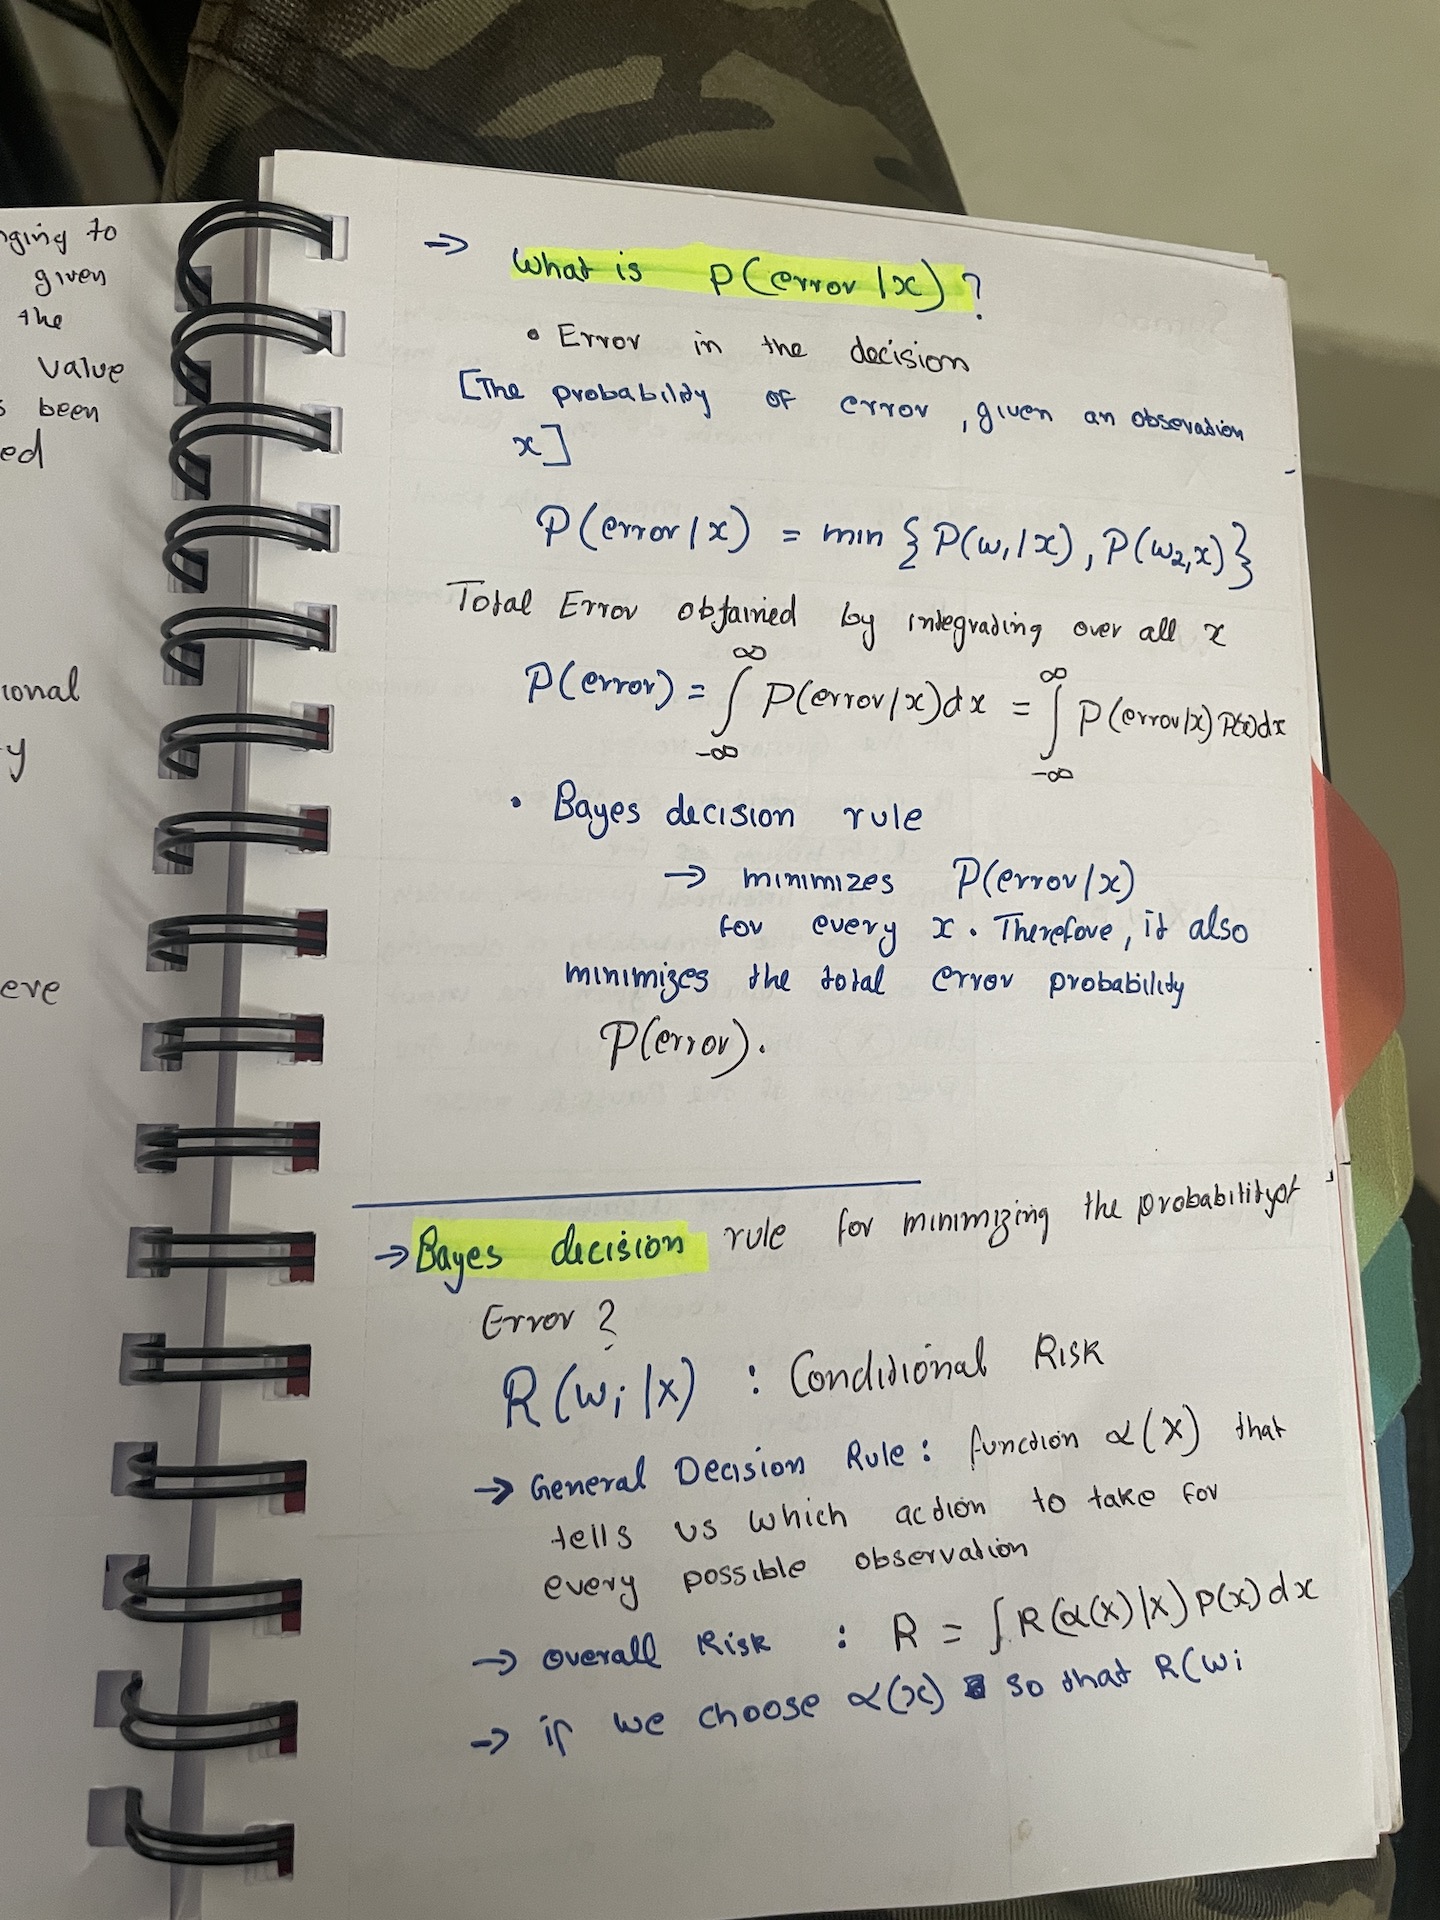 nging to
given
the
value
s been
ed
ional
y
ere
→ What is P(error/x)?
• Error in the decision
[The probability of error, given an obsevation
x]
P(error/x) = min {P(w₁/x), P(w₂,x)}
Total Error obtained by integrading over all x
P(error) = ∫_{-∞}^{∞} P(error/x)dx = ∫_{-∞}^{∞} P(error/x) P(x)dx
• Bayes decision rule
→ minimizes P(error/x)
for every x. Therefore, it also
minimizes the total error probability
P(error).
→ Bayes decision rule for minimizing the probability of
Error?
R(wᵢ|x) : Conditional Risk
→ General Decision Rule: function α(x) that
tells us which action to take for
every possible observation
→ Overall Risk : R = ∫ R(α(x)|x) p(x) dx
→ if we choose α(x) so that R(wi